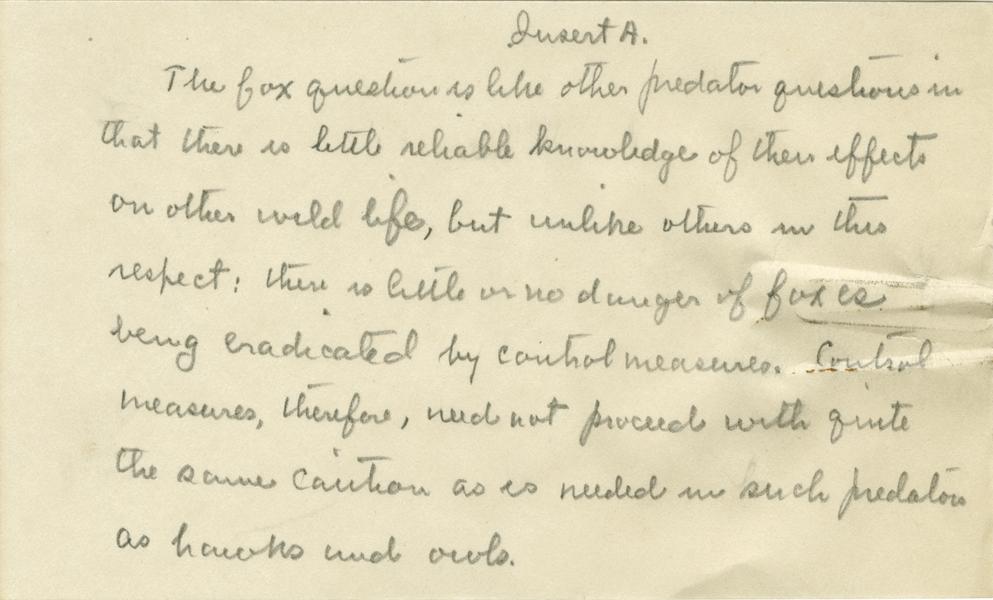 Insert A.
The fox question is like other predator questions in
that there is little reliable knowledge of their effects
on other wild life, but unlike others in this
respect: there is little or no danger of foxes
being eradicated by control measures. Control
measures, therefore, need not proceed with quite
the same caution as is needed in such predators
as hawks and owls.